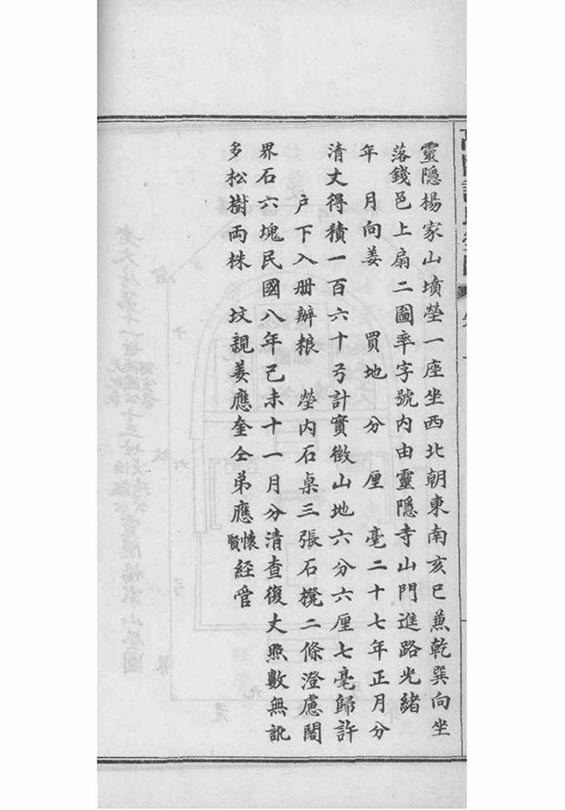 靈隱楊家山墳塋一座坐西北朝東南亥巳兼乾巽向坐
落錢邑上扇二圖率字號內由靈隱寺山門進路光緒
年　月向姜　買地　分　厘　毫二十七年正月分
清丈得積一百六十弓計實徵山地六分六厘七毫歸許
戶下入册辦粮　塋內石桌三張石櫈二條澄慮閣
界石六塊民國八年己未十一月分清查復丈照數無訛
多松樹両株　坟親姜應奎仝弟應懷賢經管